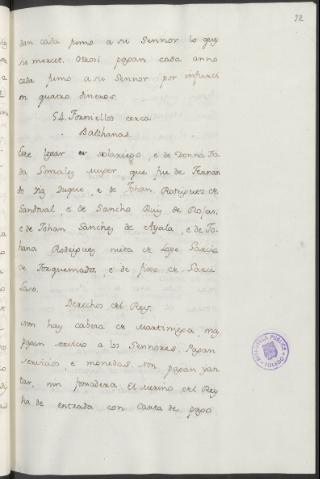 72
dan cada fumo a su Sennor lo que
se mercet. Otrosi pagan cada anno
cada fumo a su Sennor por infurcion
en quatro dineros.
54. Forniellos cerca
Balthanas
Este logar es solariego, e de Donna
Gonzalez Muger que fue de Fernan
e de Johan Rodriguez de
Sandoval, e de Sancho Ruiz de Rojas,
e de Johan Sanchez de Ayala, e de Jo-
hana Rodriguez nieta de Lope Garcia
de Torquemada, e de fijos de Garci
Laso.
Derechos del Rey.
Non hay cabeza de Martiniega, nin
pagan sinon a los Sennores. Pagan
servicios, e monedas. Non pagan yan-
tar, nin fonsadera. El Merino del Rey
ha de entrada con Carta de pago
BIBLIOTECA PUBLICA
TOLEDO